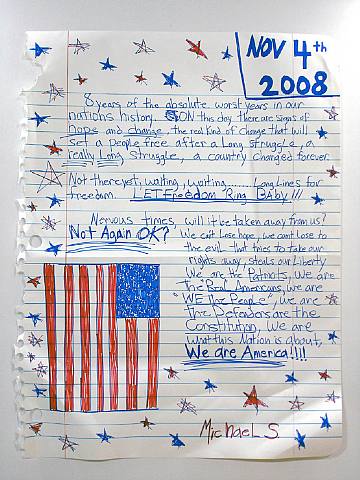 NOV 4th
2008
8 years of the absolute worst years in our
nations history. ON this day there are signs of
hope and change, the real kind of change that will
set a people free after a Long struggle, a
really Long struggle, a country changed forever.
Not there yet, waiting, waiting....... Long Lines for
freedom. LET Freedom Ring Baby!!!
Nervous times, will it be taken away from us?
Not Again OK? We can't Lose hope, we can't lose to
the evil that tries to take our
rights away, steals our Liberty
We are the Patriots, We are
The Real Americans, we are
"WE The People", we are
The Defenders are the
Constitution, We are
what this Nation is about,
We are America!!!!
Michael S.